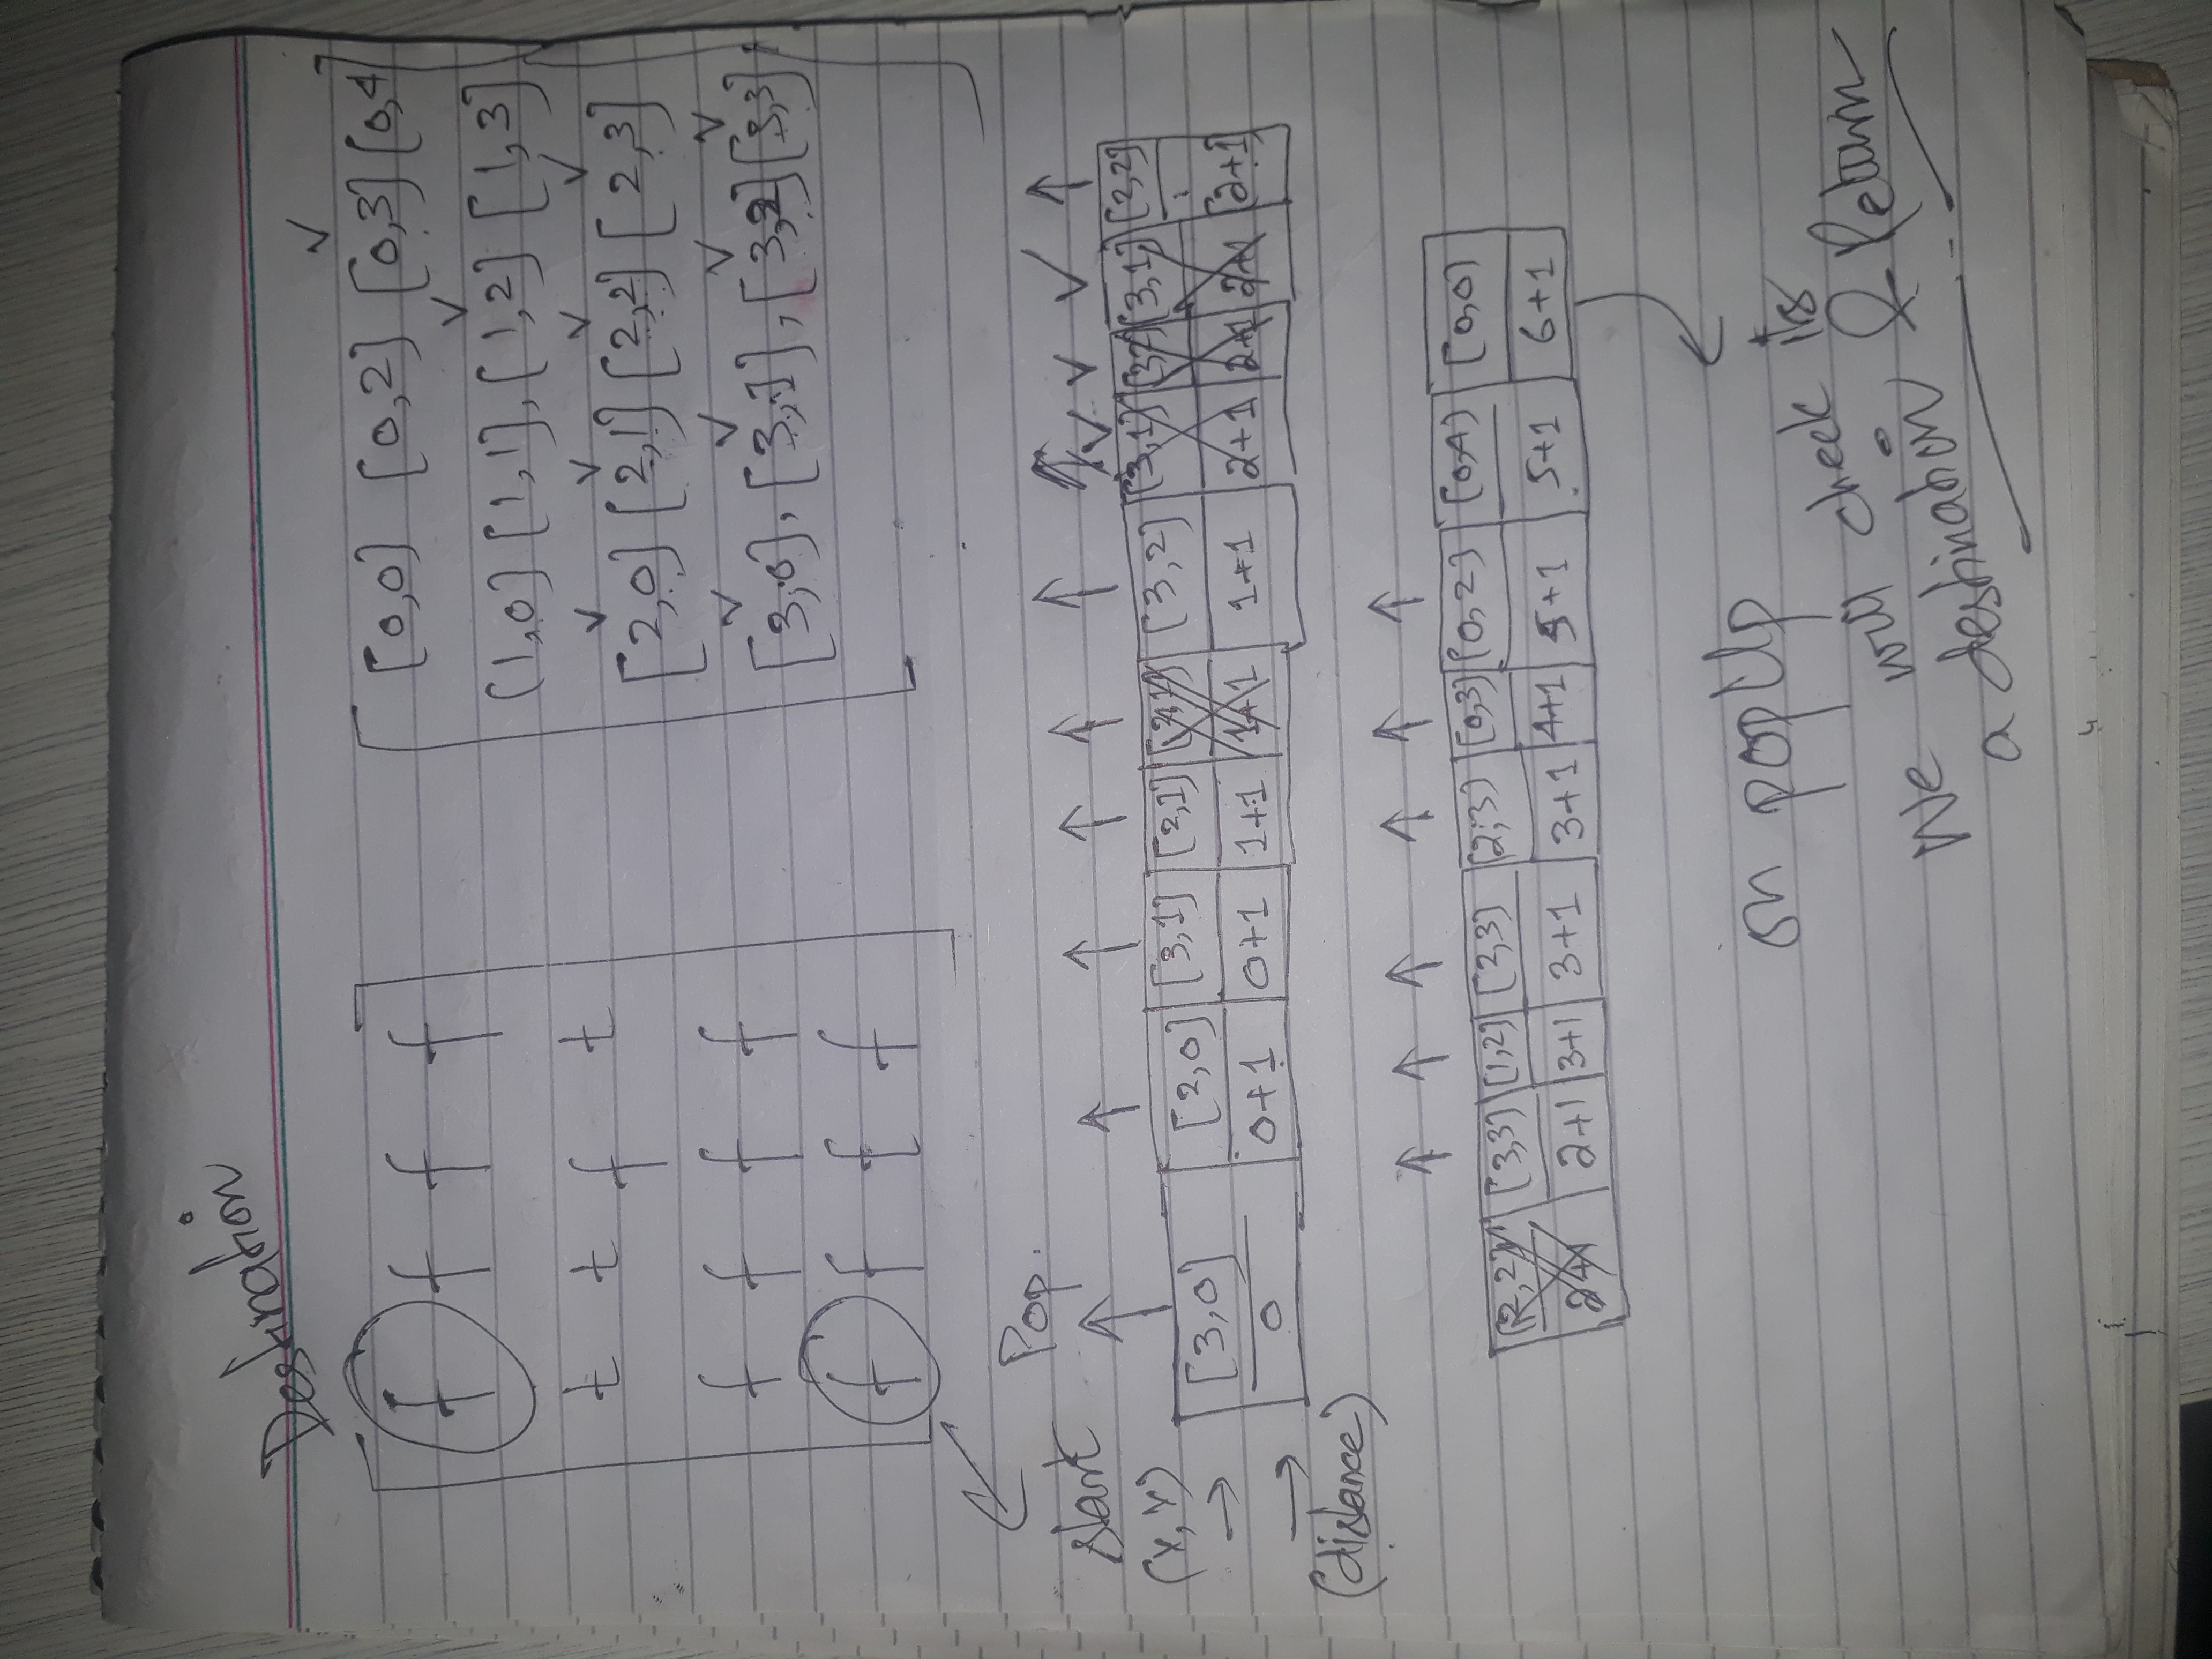 Destination
f f f f
t t f t
f f f f
f f f f
[0,0] [0,2] [0,3] [0,4
(1,0] [1,1], [1,2] [1,3]
[2,0] [2,1] [2,2] [2,3]
[3,0], [3,1], [3,2] [3,3]
start
Pop.
(x, y)
[3,0] [2,0] [3,1] [2,1] [3,2] [3,1] [3,1] [2,2]
0 0+1 0+1 1+1 1+1 1+1 2+1 2+1 2+1 [2+1]
(distance)
[2,2] [3,3] [1,2] [2,3] [2,3] [0,3] [0,2] [0,4] [0,0]
2+1 2+1 3+1 3+1 3+1 4+1 5+1 5+1 6+1
on popUp
We will check its
a destination & Return